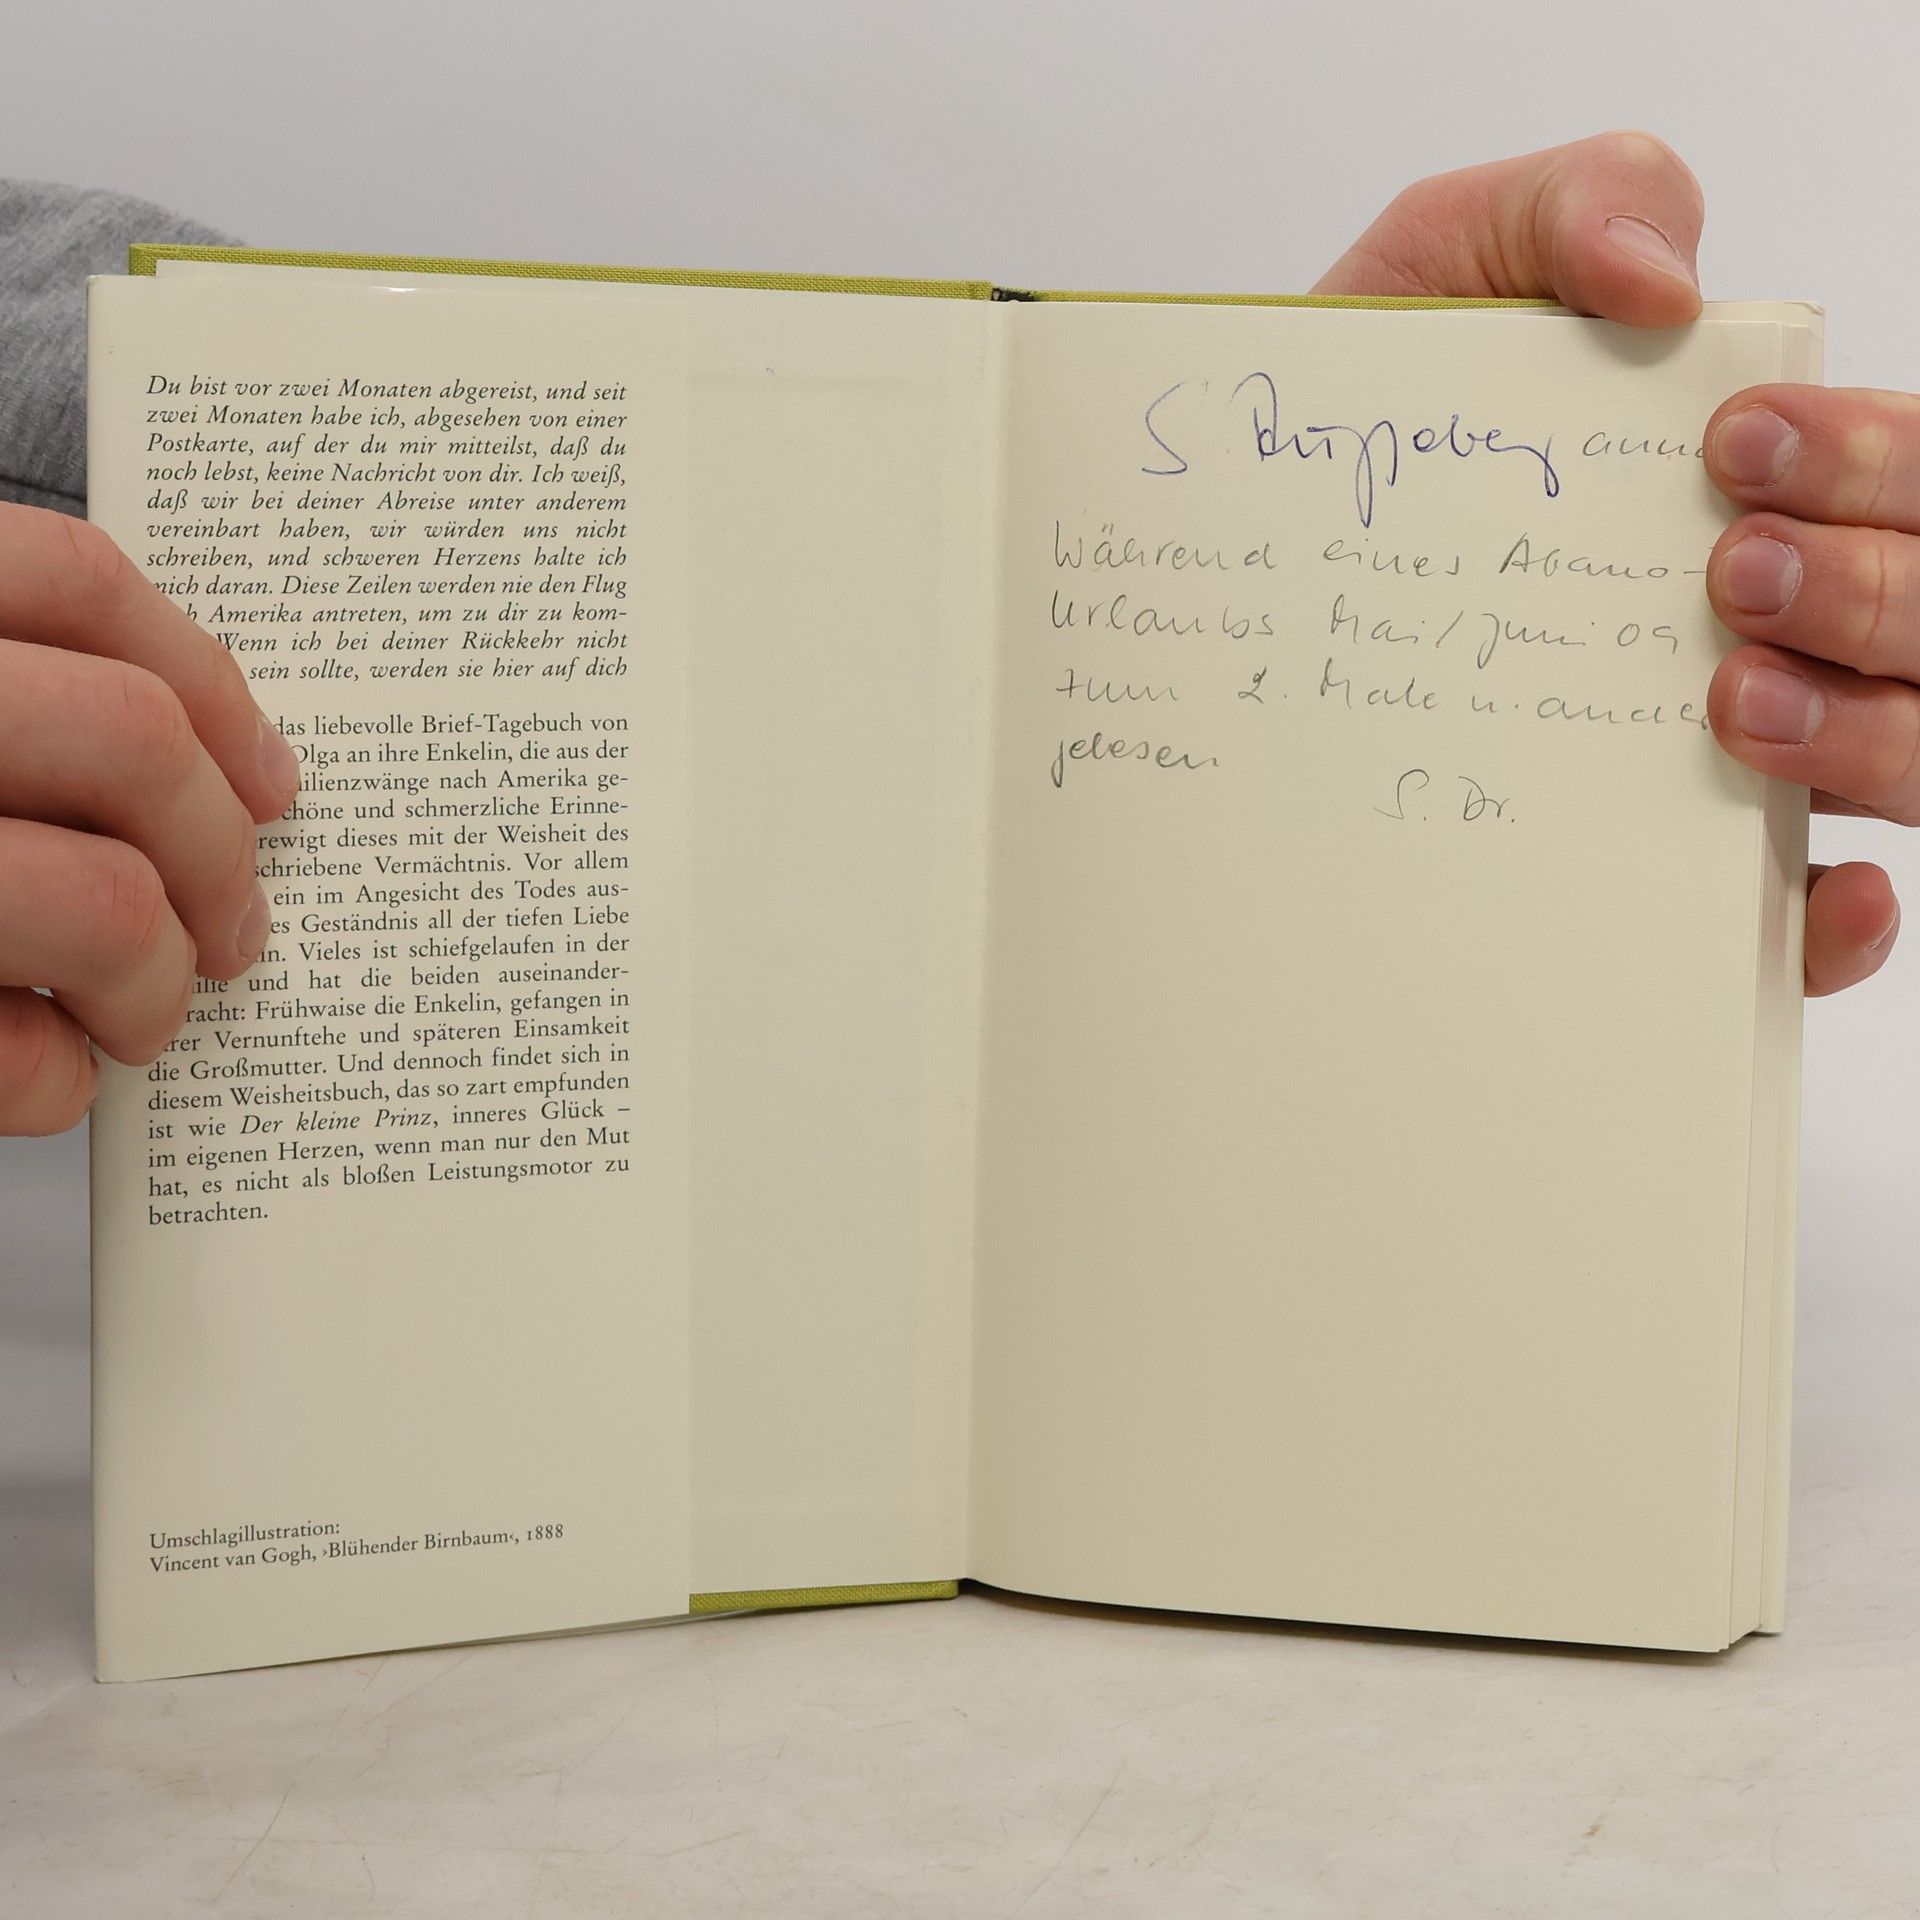 Du bist vor zwei Monaten abgereist, und seit
zwei Monaten habe ich, abgesehen von einer
Postkarte, auf der du mir mitteilst, daß du
noch lebst, keine Nachricht von dir. Ich weiß,
daß wir bei deiner Abreise unter anderem
vereinbart haben, wir würden uns nicht
schreiben, und schweren Herzens halte ich
mich daran. Diese Zeilen werden nie den Flug
Amerika antreten, um zu dir zu kom-
Wenn ich bei deiner Rückkehr nicht
sein sollte, werden sie hier auf dich
das liebevolle Brief-Tagebuch von
Olga an ihre Enkelin, die aus der
ilienzwänge nach Amerika ge-
chöne und schmerzliche Erinne-
rewigt dieses mit der Weisheit des
schriebene Vermächtnis. Vor allem
ein im Angesicht des Todes aus-
es Geständnis all der tiefen Liebe
in. Vieles ist schiefgelaufen in der
ilie und hat die beiden auseinander-
racht: Frühwaise die Enkelin, gefangen in
rer Vernunftehe und späteren Einsamkeit
die Großmutter. Und dennoch findet sich in
diesem Weisheitsbuch, das so zart empfunden
ist wie Der kleine Prinz, inneres Glück –
im eigenen Herzen, wenn man nur den Mut
hat, es nicht als bloßen Leistungsmotor zu
betrachten.
Umschlagillustration:
Vincent van Gogh, ›Blühender Birnbaum‹, 1888
S
Während eines Abano-
Urlaubs Mai/Juni 09
zum 2. Male u. ander
gelesen.
S. Dr.